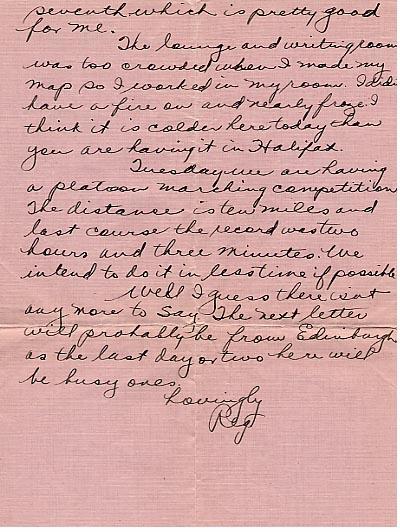 seventh which is pretty good
for me.
The lounge and writing room
was too crowded when I made my
map so I worked in my room. I didn
have a fire on and nearly froze. I
think it is colder here today than
you are having it in Halifax.
Tuesday we are having
a platoon marching competition
The distance is ten miles and
last course the record was two
hours and three minutes. We
intend to do it in less time if possible
Well I guess there isn't
any more to say. The next letter
will probably be from Edinburgh
as the last day or two here will
be busy ones.
Lovingly
Reg